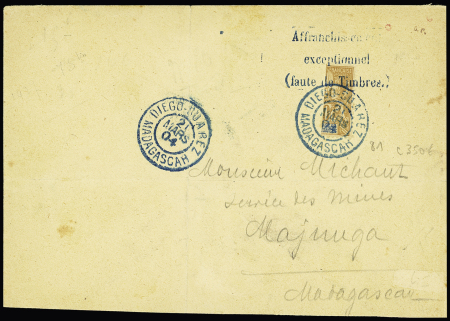 Affranchis
exceptionnel
(faute de Timbres.)
DIEGO-SUAREZ
21
MARS
04
MADAGASCAR
DIEGO-SUAREZ
21
MARS
04
MADAGASCAR
Monsieur Michaut
Service des Mines
Majunga
Madagascar